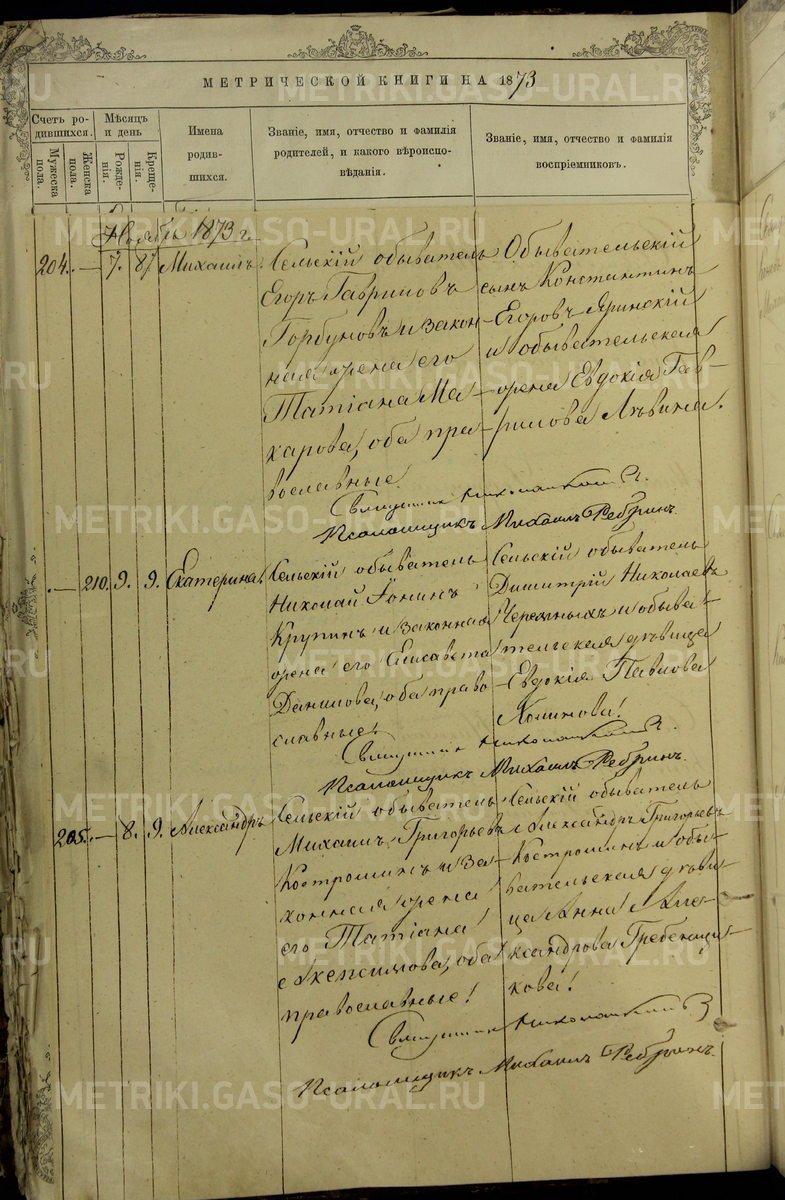 МЕТРИЧЕСКОЙ КНИГИ НА 1873
Счетъ ро-
дившихся.
Мужеска
пола.
Женска
пола.
Мѣсяцъ
и день
Рожде-
нія.
Креще-
нія.
Имена
родив-
шихся.
Званіе, имя, отчество и фамилія
родителей, и какого вѣроиспо-
вѣданія.
Званіе, имя, отчество и фамилія
воспріемниковъ.
Ноябрь 1873 г.
204. — 7. 8. Михаилъ.
Сельскій обыватель
Егоръ Гавриловъ
Горбуновъ и закон-
ная жена его
Татіана Ма-
карова, оба пра-
вославные.
Обывательскій
сынъ Константинъ
Егоровъ Яринскій
и обывательская
жена Евдокія Гав-
рилова Львина.
Священник
Псаломщикъ Михаилъ Ребринъ.
— 210. 9. 9. Екатерина.
Сельскій обыватель
Николай Іонинъ
Крупинъ и законная
жена его Елисавета
Данилова, оба право-
славные.
Сельскій обыватель
Димитрій Николаевъ
Черемныхъ и обыва-
тельская дѣвица
Евдокія Павлова
Священник
Псаломщикъ Михаилъ Ребринъ.
205. — 8. 9. Александръ
Сельскій обыватель
Михаилъ Григорьевъ
Костромінъ и за-
конная жена
его Татіана
Алексимова, оба
православные!
Сельскій обыватель
Александръ Григорьевъ
Костроминъ и обы-
вательская дѣви-
ца Анна Але-
ксандрова Гребенщи-
кова!
Священник
Псаломщикъ Михаилъ Ребринъ.
METRIKI.GASO-URAL.RU